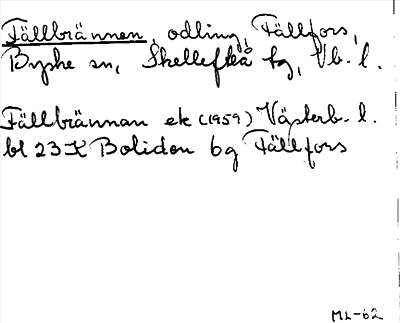 Fällbrännen, odling, Fällfors,
Byske sn, Skellefteå tg, Vb. l.
Fällbrännan ek (1959) Västerb. l.
bl 23 K Boliden 6g Fällfors
ML-62